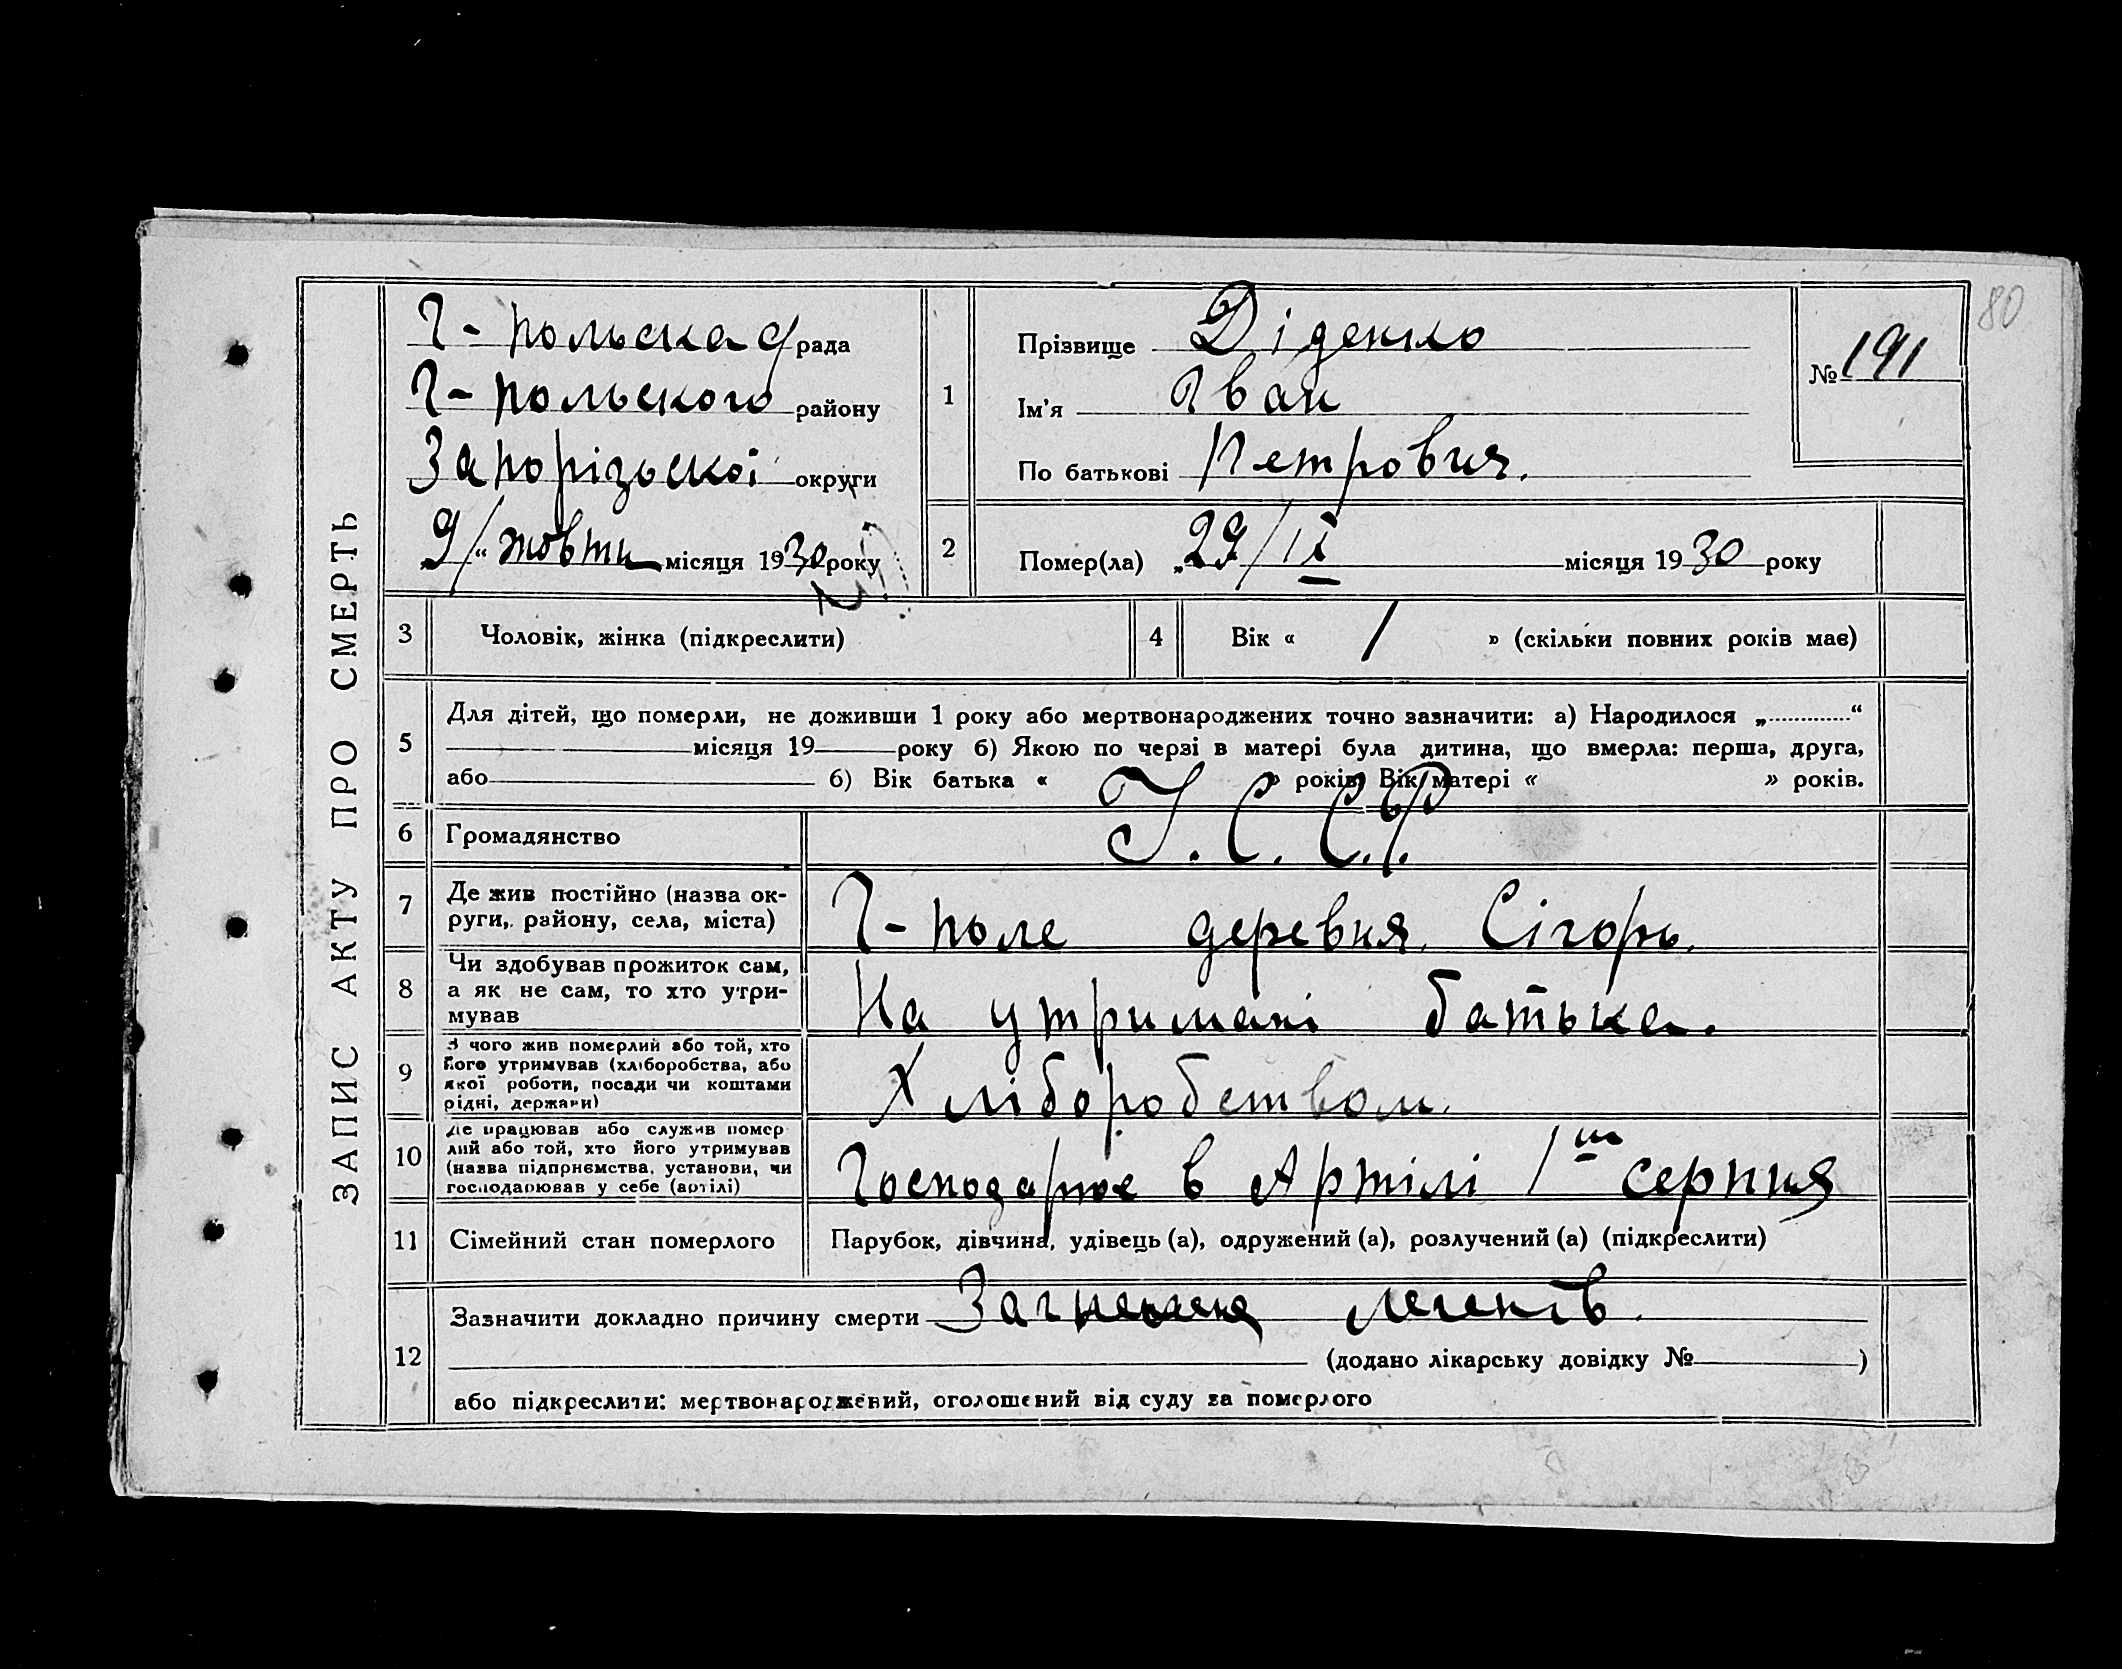 80
ЗАПИС АКТУ ПРО СМЕРТЬ
Г-польска с/рада
Г-польского району
Запорізьскої округи
„9/“ жовтн місяця 1930 року
1
Прізвище Діденко
Ім'я Іван
По батькові Петрович.
№ 191
2
Помер(ла) „29/IX місяця 1930 року
3 Чоловік, жінка (підкреслити)
4 Вік « 1 » (скільки повних років має)
5
Для дітей, що померли, не доживши 1 року або мертвонароджених точно зазначити: а) Народилося „............“
місяця 19 року б) Якою по черзі в матері була дитина, що вмерла: перша, друга,
або б) Вік батька « » років. Вік матері « » років.
6 Громадянство У.С.С.Р.
7 Де жив постійно (назва ок-
руги, району, села, міста)
Г-поле деревня Сігорь.
8 Чи здобував прожиток сам,
а як не сам, то хто утри-
мував
На утримані батька.
9 З чого жив померлий або той, хто
його утримував (хліборобства, або
якої роботи, посади чи коштами
рідні, держави)
Хліборобством.
10 Де працював або служив помер
лий або той, хто його утримував
(назва підприємства, установи, чи
господарював у себе (артілі)
Господарює в Артілі 1ш серпня
11 Сімейний стан померлого Парубок, дівчина, удівець (а), одружений (а), розлучений (а) (підкреслити)
12
Зазначити докладно причину смерти легенів.
(додано лікарську довідку № )
або підкреслити: мертвонароджений, оголошений від суду за померлого